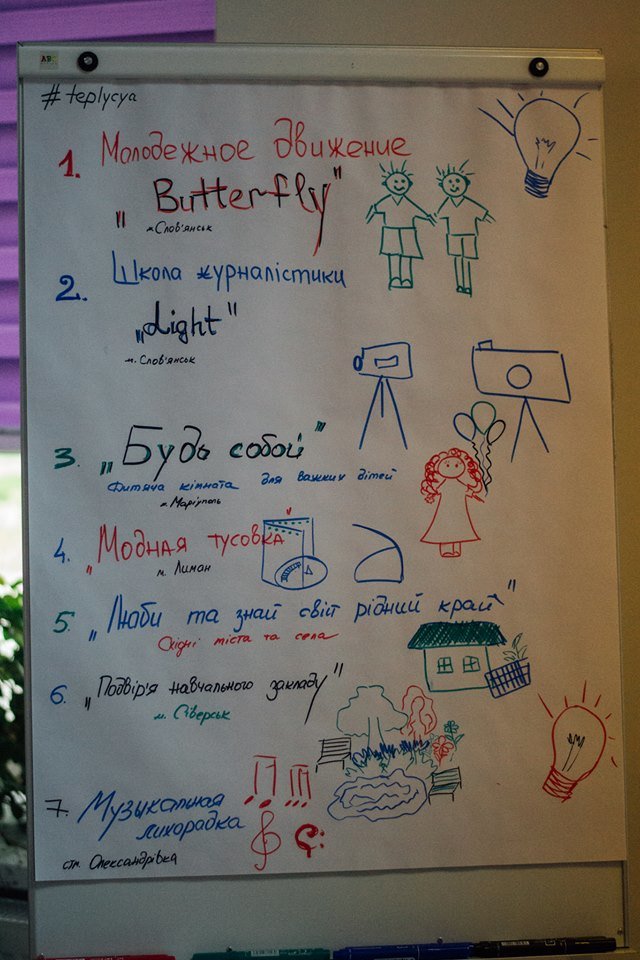 ABC
# teplycya
1. Молодежное движение
„Butterfly"
м.Слов'янськ
2. Школа журналістики
„Light"
м. Слов'янськ
3. „Будь собой"
Дитяча кімната для важких дітей
м. Маріуполь
4. „Модная тусовка"
м. Лиман
5. „Люби та знай свій рідний край"
Східні міста та села
6. „Подвір'я навчального закладу"
м. Сіверськ
7. Музыкальная
лихорадка
смт. Олександрівка